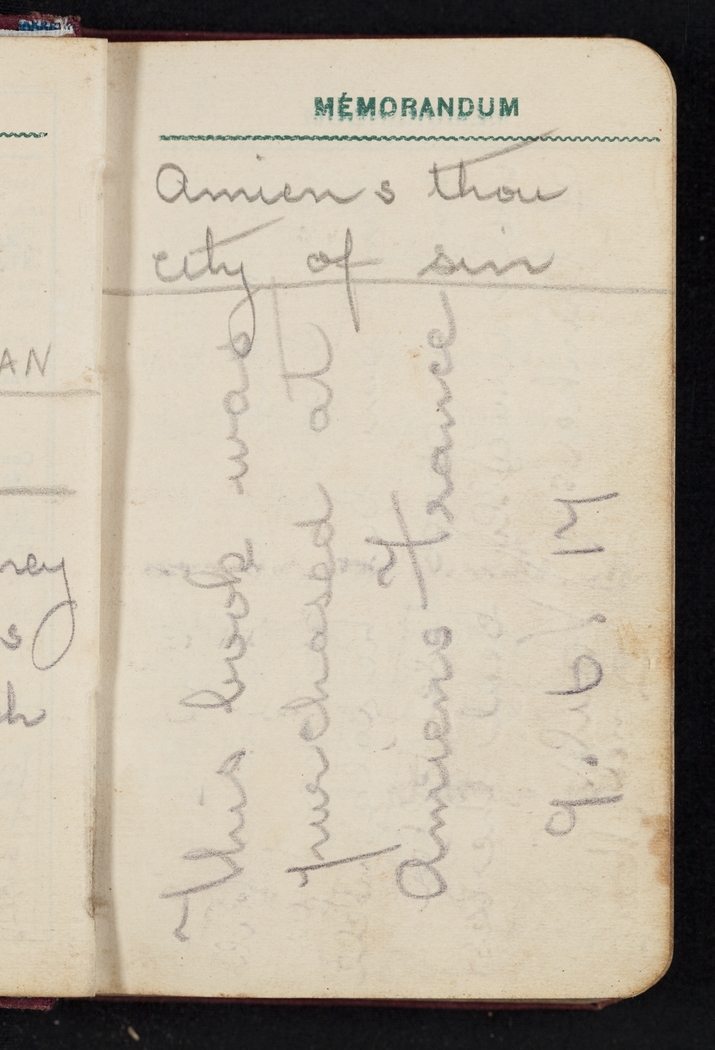 MÉMORANDUM
Amiens thou
city of sin
This book was
purchased at
Amiens France
9.6.17
AN
rey
s
ch